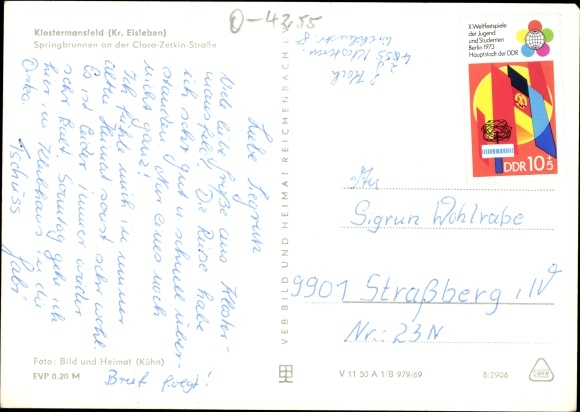 Klostermansfeld (Kr. Eisleben)
Springbrunnen an der Clara-Zetkin-Straße
0-4255
Liebe Siegrun
Viele liebe Grüße aus Kloster-
mansfeld. Die Reise habe
ich sehr gut u. schnell über-
standen. Nur eines noch
nicht ganz!
Ich fühle mich in meiner
alten Heimat sonst sehr wohl.
Es ist leider immer wieder
sehr kalt. Sonntag gehe ich
hier in Klubhaus in die
Disko.
Tschüss
Gabi
Brief folgt!
Foto: Bild und Heimat (Kühn)
EVP 0.20 M
VEB BILD UND HEIMAT REICHENBACH i. V.
4255 Kloster
X. Weltfestspiele
der Jugend
und Studenten
Berlin 1973
Hauptstadt der DDR
DDR 10+5
An
Sigrun Wohlrabe
9901 Straßberg i/V
Nr.: 23N
V 11 50 A 1/B 979/69
8/2906